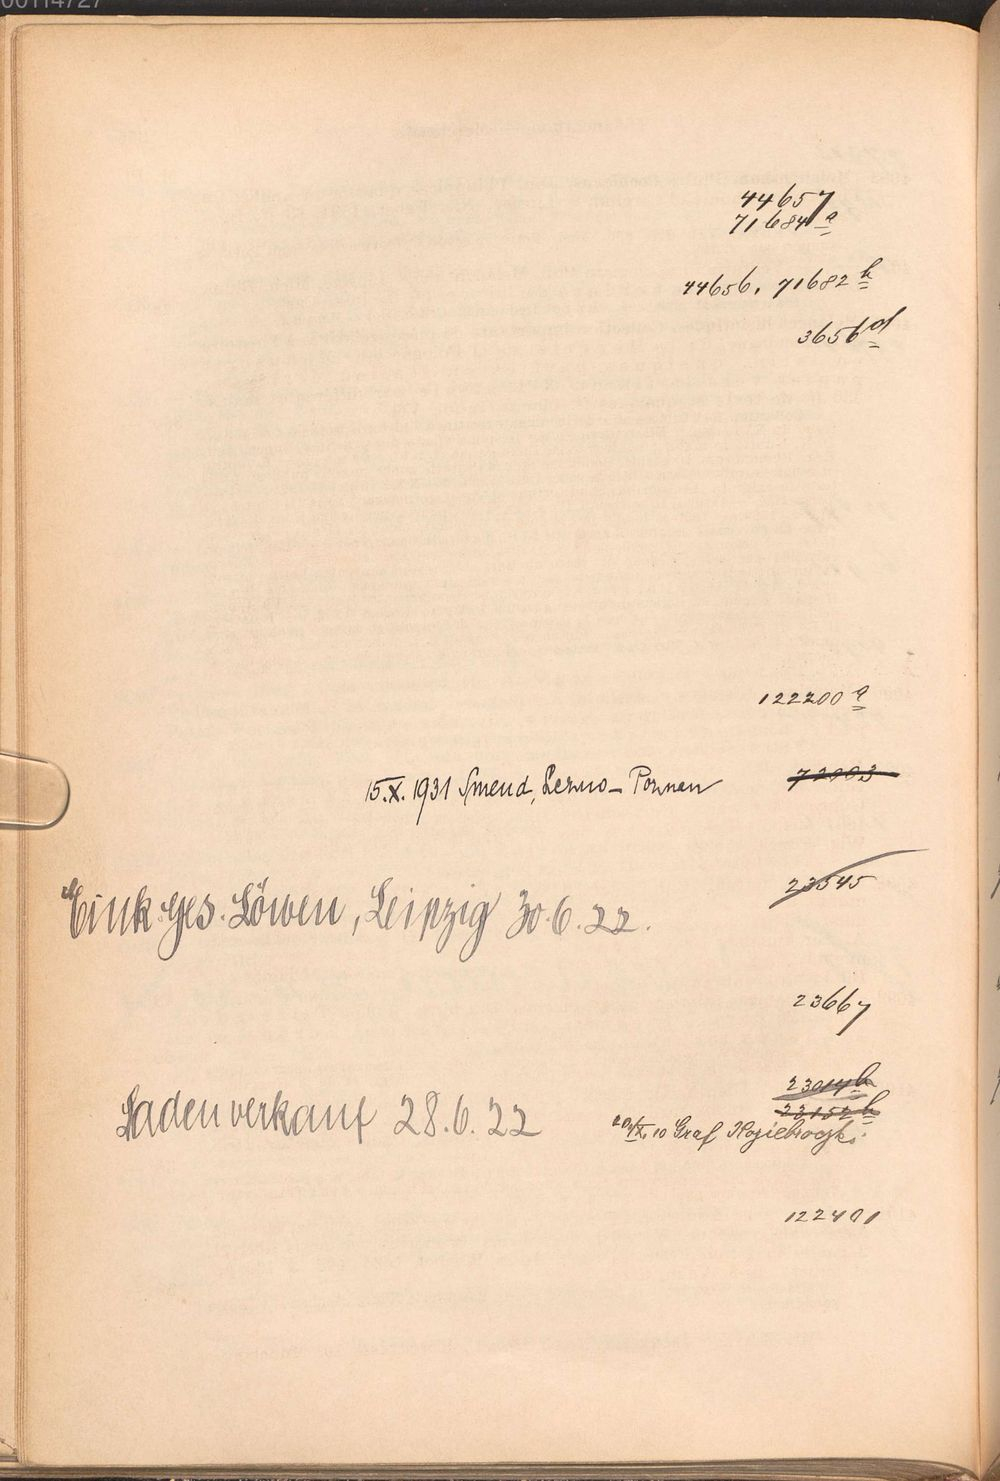 44657
71684 a
44656. 71682 b
3656 d
122200 a
15.X.1931 Smend, Lezno - Poznan
72003
23545
Eink. Ges. Löwen, Leipzig 30.6.22.
23667
23014 b
23152 b
Ladenverkauf 28.6.22
20/IX. 10 Graf
122401